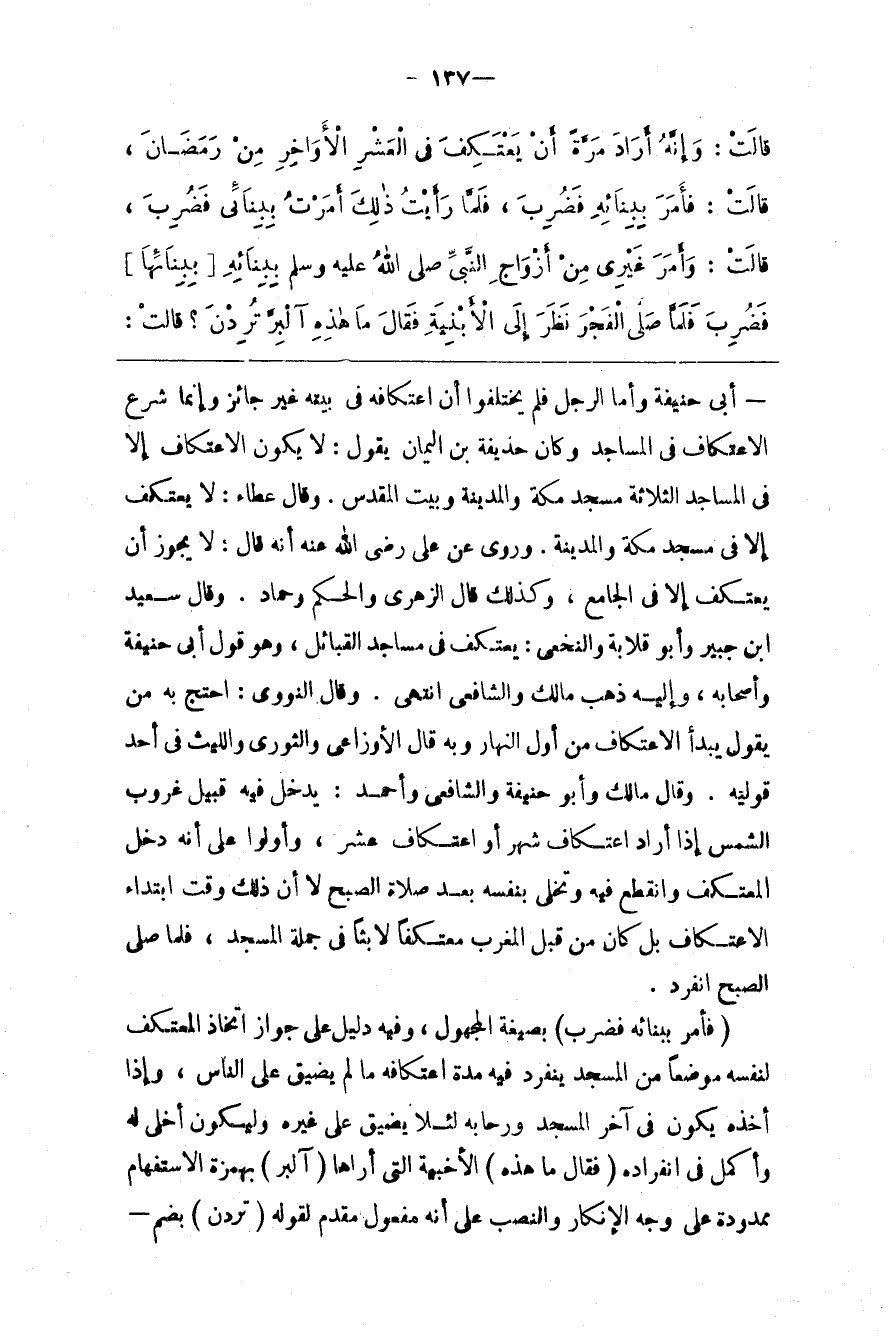 —١٣٧ -
قالَتْ : وَإِنَّهُ أَرَادَ مَرَّةً أَنْ يَعْتَكِفَ فى الْعَشْرِ الْأَوَاخِرِ مِنْ رَمَضَانَ ،
قالَتْ : فأَمَرَ بِبِنَائِهِ فَضُرِبَ ، فَلَمَّا رَأَيْتُ ذٰلِكَ أَمَرْتُ بِبِنَائى فَضُرِبَ ،
قالَتْ : وَأَمَرَ غَيْرِى مِنْ أَزْوَاجِ النَّبىِّ صلى اللهُ عليه وسلم بِبِنَائِهِ [ بِبِنَائِهَا ]
فَضُرِبَ فَلَمَّا صَلَّى الْفَجْرَ نَظَرَ إِلَى الْأَبْنِيَةِ فَقَالَ مَا هٰذِهِ آ لْبِرَّ تُرِدْنَ ؟ قالتْ :
— أبى حنيفة وأما الرجل فلم يختلفوا أن اعتكافه فى بيته غير جائز وإنما شرع
الاعتكاف فى المساجد وكان حذيفة بن اليمان يقول : لا يكون الاعتكاف إلا
فى المساجد الثلاثة مسجد مكة والمدينة وبيت المقدس . وقال عطاء : لا يعتكف
إلا فى مسجد مكة والمدينة . وروى عن على رضى الله عنه أنه قال : لا يجوز أن
يعتكف إلا فى الجامع ، وكذلك قال الزهرى والحكم وحماد . وقال سعيد
ابن جبير وأبو قلابة والنخعى : يعتكف فى مساجد القبائل ، وهو قول أبى حنيفة
وأصحابه ، وإليه ذهب مالك والشافعى انتهى . وقال النووى : احتج به من
يقول يبدأ الاعتكاف من أول النهار وبه قال الأوزاعى والثورى والليث فى أحد
قوليه . وقال مالك وأبو حنيفة والشافعى وأحمد : يدخل فيه قبيل غروب
الشمس إذا أراد اعتكاف شهر أو اعتكاف عشر ، وأولوا على أنه دخل
المعتكف وانقطع فيه وتخلى بنفسه بعد صلاة الصبح لا أن ذلك وقت ابتداء
الاعتكاف بل كان من قبل المغرب معتكفاً لابثاً فى جملة المسجد ، فلما صلى
الصبح انفرد .
( فأمر ببنائه فضرب ) بصيغة المجهول ، وفيه دليل على جواز اتخاذ المعتكف
لنفسه موضعاً من المسجد ينفرد فيه مدة اعتكافه ما لم يضيق على الناس ، وإذا
أخذه يكون فى آخر المسجد ورحابه لئلا يضيق على غيره وليكون أخلى له
وأكمل فى انفراده ( فقال ما هذه ) الأخبية التى أراها ( آ لبر ) بهمزة الاستفهام
ممدودة على وجه الإنكار والنصب على أنه مفعول مقدم لقوله ( تردن ) بضم —